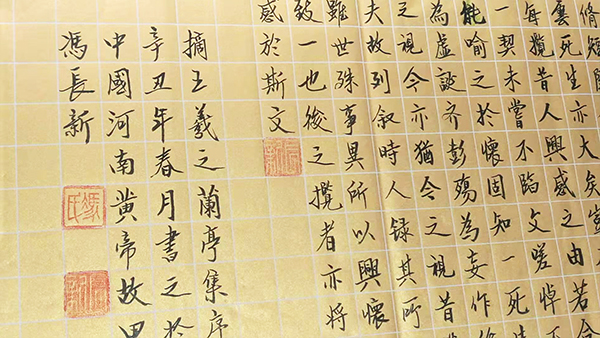 脩短隨
死生亦大矣
每攬昔人興感之由若合
一契未嘗不臨文嗟悼不
能喻之於懷固知一死生
為虛誕齊彭殤為妄作
之視今亦猶今之視昔
夫故列敘時人錄其所
雖世殊事異所以興懷
致一也後之攬者亦將
感於斯文
摘王羲之蘭亭集序
辛丑年春月書之於
中國河南黃帝故里
馮長新
馮氏